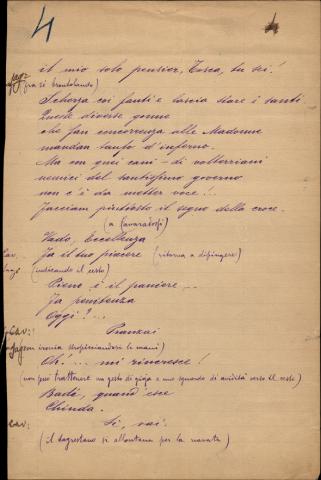 4
il mio solo pensier, Tosca, sei tu!
Sag: (fra sè brontolando)
Scherza coi fanti e lascia stare i santi.
Queste diverse gonne
che fan concorrenza alle Madonne
mandan tanfo d'inferno.
Ma con quei cani di volterriani
nemici del santissimo governo
non c'è da metter voce!..
Facciam piuttosto il segno della croce.
(a Cavaradossi)
Vado, Eccellenza
Cav. Fa il tuo piacere (ritorna a dipingere)
Sag. (indicando il cesto)
Pieno è il paniere...
Fa penitenza
Oggi?...
Cav.: Pranzai
Sag: (con ironia stropicciandosi le mani)
Oh!... mi rincresce!
(non può trattenere un gesto di gioja e uno sguardo di avidità verso il cesto)
Badi, quand'esce
Chiuda.
Cav: Sì, vai.
(il sagrestano si allontana per la navata)